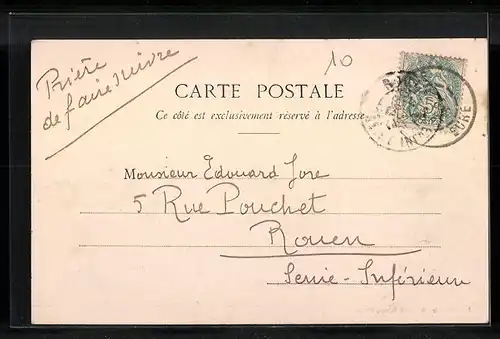 Prière
de faire suivre
10
CARTE POSTALE
Ce côté est exclusivement réservé à l'adresse
Monsieur Edouard Jore
5 Rue Pouchet
Rouen
Seine-Inférieure
EURE